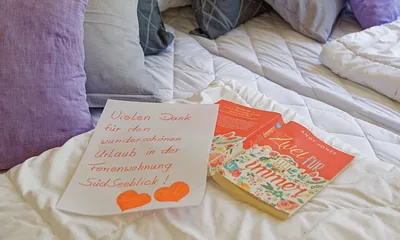 Vielen Dank
für den
wunderschönen
Urlaub in der
Ferienwohnung
SüdSeeblick!
ANDY JONES
Zwei für
immer